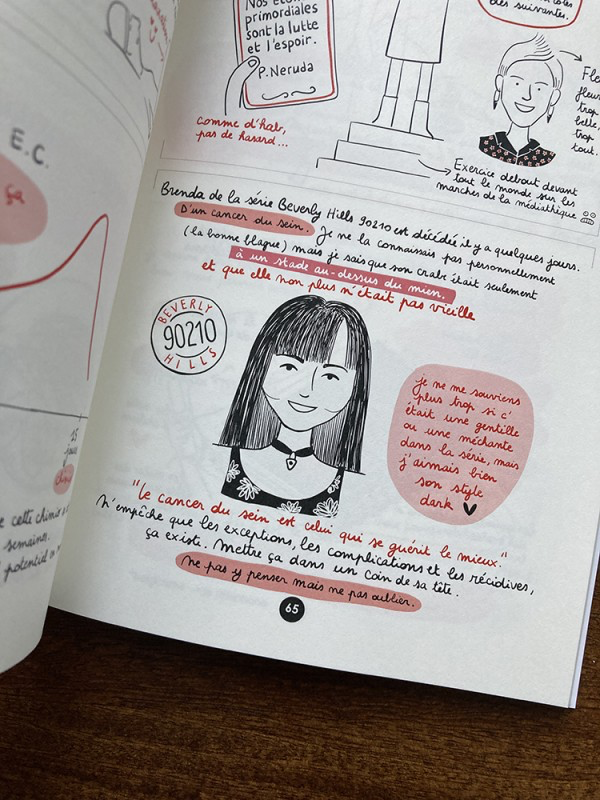 E.C.
ça
15
jours
e cette chimio a
semaines.
potentiel
Nos étoiles
primordiales
sont la lutte
et l'espoir.
P. Neruda
comme d'hab,
pas de hasard...
des suivantes.
trop
belle,
trop
tout.
Exercice debout devant
tout le monde sur les
marches de la médiathèque
Brenda de la série Beverly Hills 90210 est décédée il y a quelques jours.
D'un cancer du sein. Je ne la connaissais pas personnellement
(la bonne blague) mais je sais que son crabe était seulement
à un stade au-dessus du mien.
et que elle non plus n'était pas vieille
BEVERLY
90210
HILLS
je ne me souviens
plus trop si c'
était une gentille
ou une méchante
dans la série, mais
j'aimais bien
son style
dark
"Le cancer du sein est celui qui se guérit le mieux."
N'empêche que les exceptions, les complications et les récidives,
ça existe. Mettre ça dans un coin de sa tête.
ne pas y penser mais ne pas oublier.
65